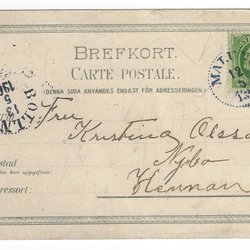 BREFKORT.
CARTE POSTALE.
(DENNA SIDA ANVÄNDES ENDAST FÖR ADRESSERINGEN.)
Fru
Kristina Olsson
Nybo
Hennan
stad
ressort: